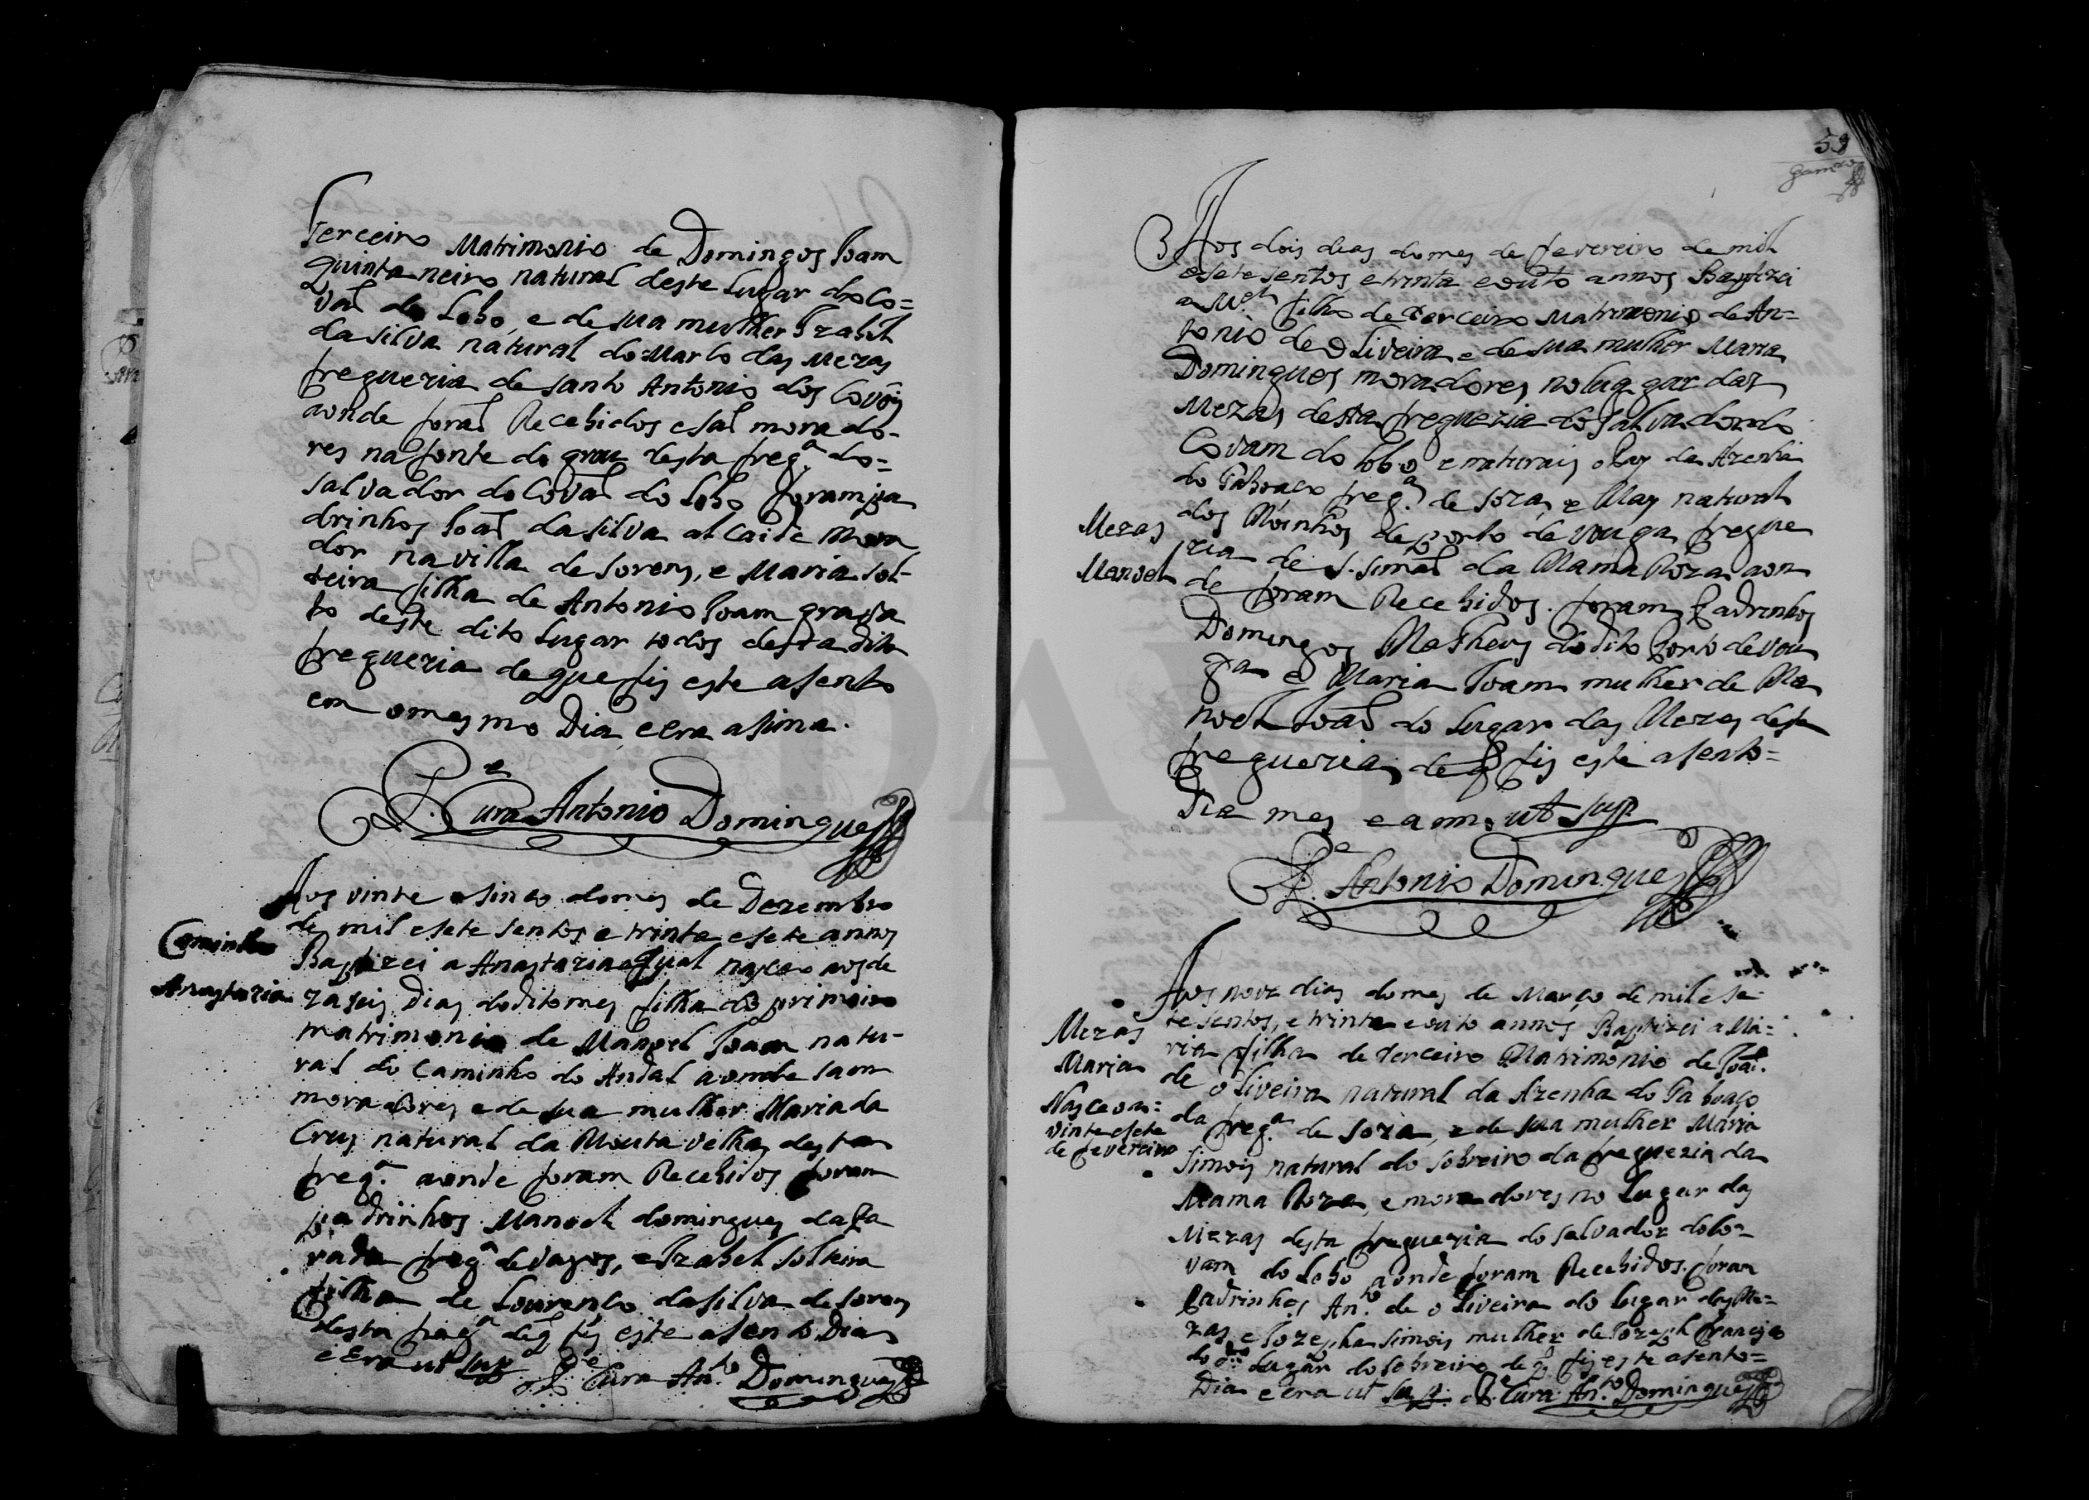 Terceiro Matrimonio de Domingos Joam
quintaneiro natural deste lugar do Co=
vaõ do Lobo, e de sua mulher Izabel
da silva natural do Marco das Mezas
freguezia de santo Antonio dos Covõis
aonde foraõ Recebidos e saõ morado-
res na fonte do grou desta freg.ª do=
salvador do Covaõ do Lobo foram pa
drinhos Joaõ da silva alcaide mora
dor na villa de soreny, e Maria sol-
teira filha de Antonio Joam
to deste dito lugar todos desta dita
freguezia de que fis este asento
em o mesmo Dia, e era asima.
P.e Cura Antonio Domingues
Aos vinte e sinco do mes de Dezembro
de mil e sete sentos e trinta e sete annos
Baptizei a Anastazia a qual nasceo aos de
zaseis Dias do dito mes filha do primeiro
matrimonio de Manoel Joam natu-
ral do Caminho do Andal aonde sam
moradores e de sua mulher Maria da
Crus natural da Mouta velha desta
freg.ª aonde foram Recebidos foram
padrinhos Manoel domingues da Pa
rada freg.ª de vagos, e Izabel solteira
filha de Lourenço da silva de soreny
desta freg.ª de q fis este asento Dia
e era ut sup P.e Cura An.to Domingues
Caminho
Anastazia
59
3 Aos dois dias do mes de fevereiro de mil
e sete sentos e trinta e outo annos Baptizei
a M.el filho de Terceiro Matrimonio de An=
tonio de oliveira e de sua mulher Maria
Domingues moradores no luggar das
Mezas desta freguezia do salvador do
Covam do lobo e naturais o Pay da Azenha
do Paboaço freg.ª de soza, e May natural
dos Moinhos de porto de vouga fregue
zia de S. simaõ da Mama Roza aon
de foram Recebidos. foram Padrinhos
Domingos Matheus do dito Porto de vou
ga e Maria Joam mulher de Ma
noel Joaõ do lugar das Mezas desta
freguezia de q fis este asento=
Dia mes e anno ut sup.
P.e Antonio Domingues
Mezas
Manoel
Aos nove dias do mes de Março de mil e se-
te sentos, e trinta e outo annos Baptizei a Ma=
ria filha de terceiro Matrimonio de Joaõ
de oliveira natural da Azenha do Paboaço
da freg.ª de soza, e de sua mulher Maria
Simois natural do sobreiro da freguezia da
Mama Roza, e moradores no Lugar das
Mezas desta freguezia do salvador do Co=
vam do Lobo aonde foram Recebidos. foram
Padrinhos An.to de oliveira do lugar das Me=
zas e Jozepha simois mulher de Jozeph francisco
do d.o Lugar do sobreiro de q fis este asento=
Dia e era ut sup. P.e Cura An.to Domingues
Mezas
Maria
Nasceo a=
vinte e sete
de fevereiro